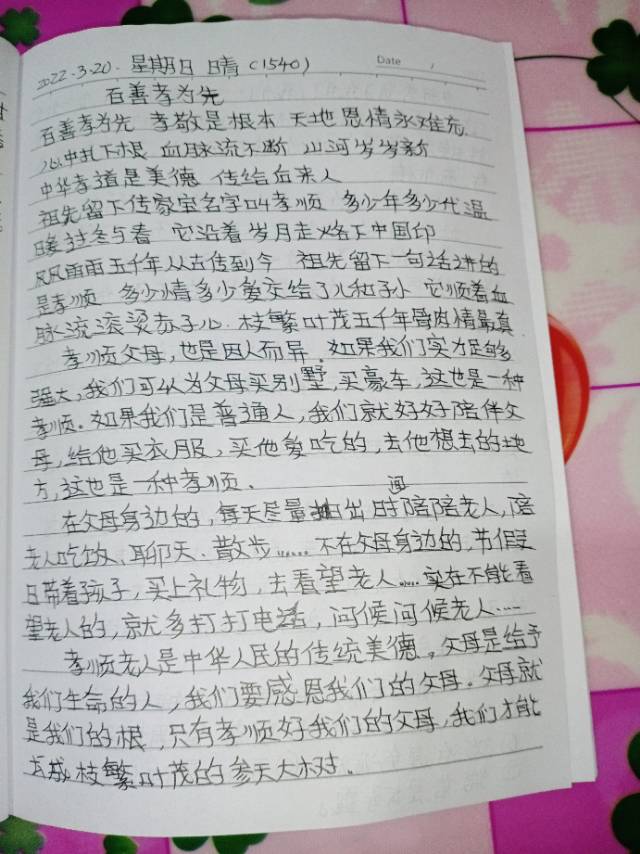 2022.3.20. 星期日 晴(1540)
Date /
百善孝为先
百善孝为先 孝敬是根本 天地恩情永难充
心中扎下根 血脉流不断 山河岁岁新
中华孝道是美德 传给后来人
祖先留下传家宝名字叫孝顺 多少年多少代温
暖过冬与春 它沿着岁月走 烙下中国印
风风雨雨五千年从古传到今 祖先留下一句话讲的
是孝顺 多少情多少爱交给了儿和孙 它顺着血
脉流滚烫赤子心. 枝繁叶茂五千年骨肉情最真
孝顺父母,也是因人而异。如果我们实力足够
强大,我们可以为父母买别墅,买豪车,这也是一种
孝顺。如果我们是普通人,我们就好好陪伴父
母,给他买衣服,买他爱吃的,去他想去的地
方,这也是一种孝顺。
在父母身边的,每天尽量抽出时间陪陪老人,陪
老人吃饭、聊天、散步……不在父母身边的,节假
日带着孩子,买上礼物,去看望老人……实在不能看
望老人的,就多打打电话,问候问候老人……
孝顺老人是中华人民的传统美德。父母是给予
我们生命的人,我们要感恩我们的父母。父母就
是我们的根,只有孝顺好我们的父母,我们才能
长成枝繁叶茂的参天大树。